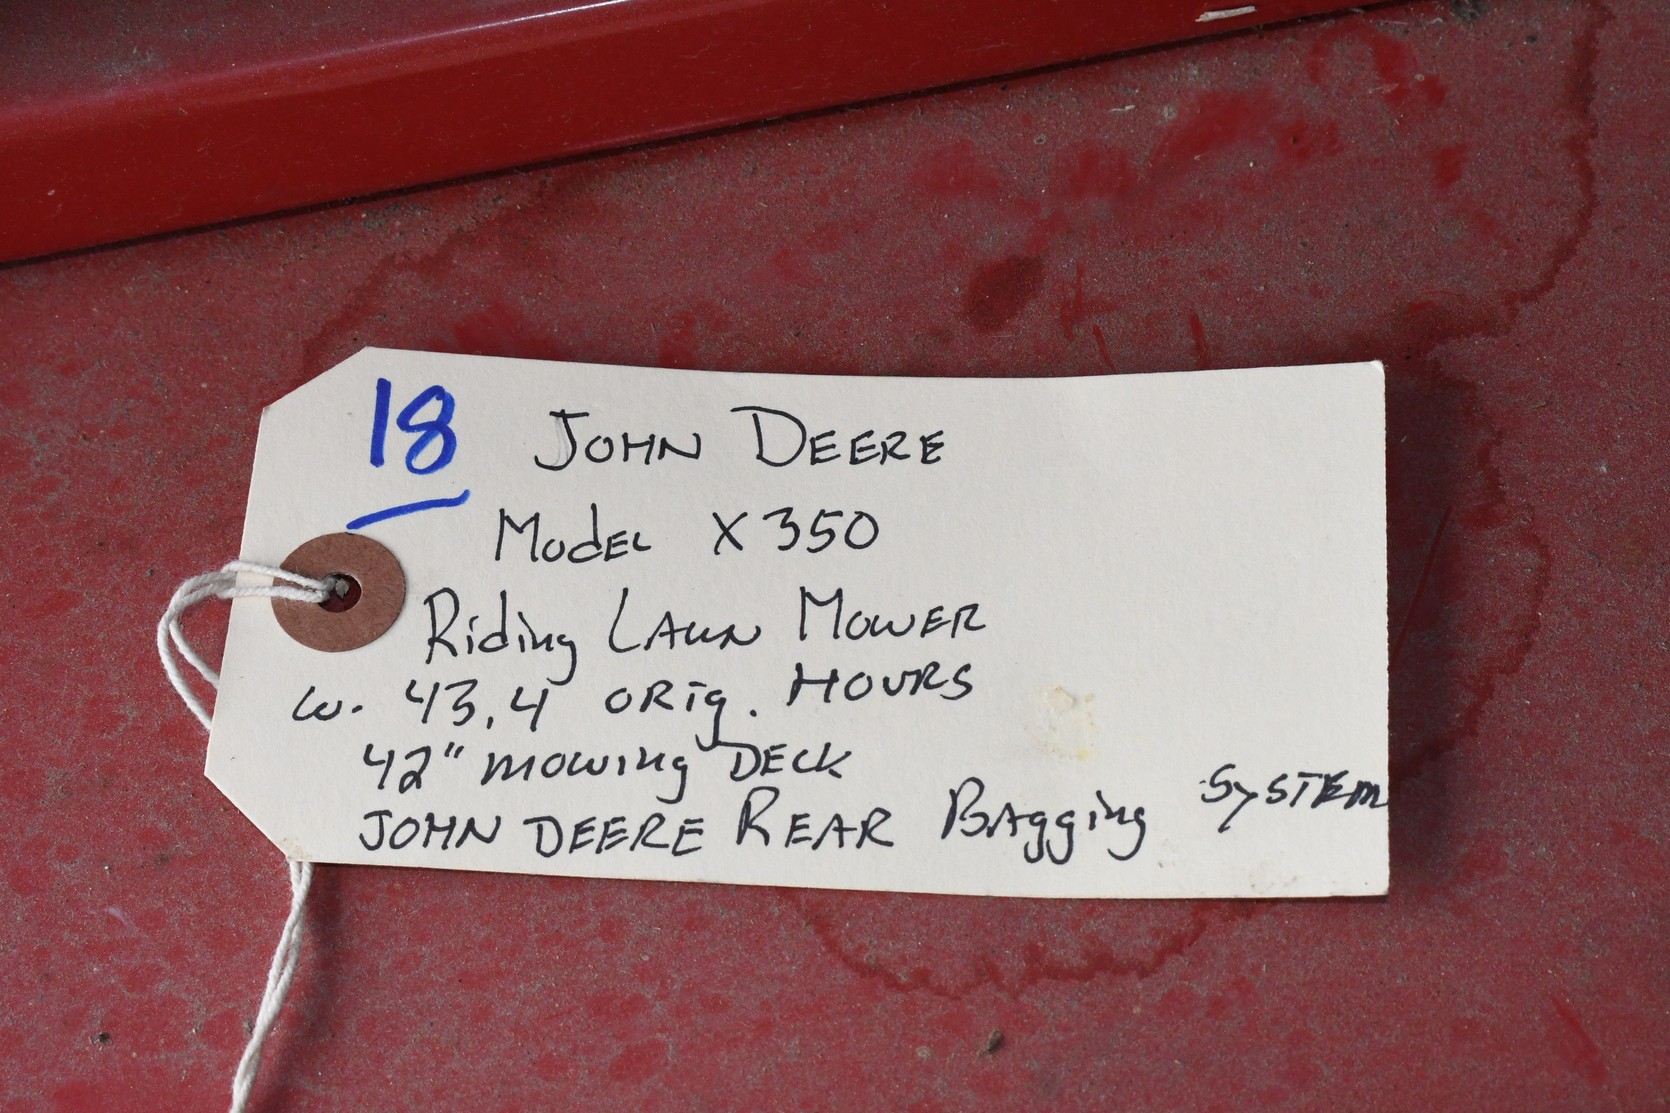 18 JOHN DEERE
Model X350
Riding LAWN MOWER
w. 43.4 ORig. HOURS
42" mowing DECK
JOHN DEERE REAR BAgging SYSTEm